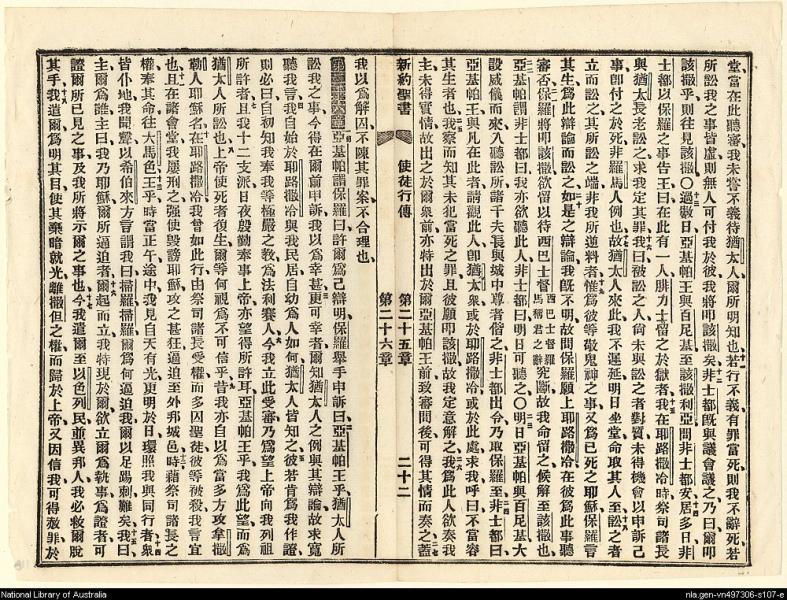 堂當在此聽審我未嘗不義待猶太人爾所明知也若行不義有罪當死則我不辭死若
所訟我之事皆虛則無人可付我於彼我將叩該撒矣非士都旣與議會議之乃曰爾叩
該撒乎則往見該撒〇過數日亞基帕王與百尼基至該撒利亞問非士都安居多日非
士都以保羅之事告王曰在此有一人腓力士留之於獄者我在耶路撒冷時祭司諸長
與猶太長老訟之求我定其罪我曰被訟之人尚未與訟之者對質未得機會以申訴己
事卽付之於死非羅馬人例也故猶太人來此我不遲延明日坐堂命取其人至訟之者
立而訟之其所訟之端非我所逆料者惟爲彼等敬鬼神之事又爲已死之耶穌保羅言
其生爲此辯論而訟之如是之辯論我旣不明故問保羅願上耶路撒冷在彼爲此事聽
審否保羅將叩該撒欲留以待西巴士督西巴士督羅馬稱君之辭究斷故我命留之候解至該撒也
亞基帕謂非士都曰我亦欲聽此人非士都曰明日可聽之〇明日亞基帕與百尼基大
設威儀而來入聽訟所諸千夫長與城中尊者偕之非士都出令乃取保羅至非士都曰
亞基帕王與凡在此者請觀此人卽猶太衆或於耶路撒冷或於此處求我呼曰不當容
其生者也我察而知其未犯當死之罪且彼願叩該撒故我定意解之我爲此人欲奏我
主未得實情故出之於爾衆前亦特出於爾亞基帕王前致審問後可得其情而奏之蓋
新約聖書 使徒行傳 第二十五章 第二十六章 二十二
我以爲解囚不陳其罪案不合理也
第二十六章亞基帕謂保羅曰許爾爲己辯明保羅舉手申訴曰亞基帕王乎猶太人所
訟我之事今得在爾前申訴我以爲幸甚更可幸者爾知猶太人之例與其辯論故求寬
聽我言我自始於耶路撒冷與我民居自幼爲人如何猶太人皆知之彼若肯爲我作證
則必曰自初知我奉我等極嚴之敎爲法利賽人今我立此受審乃爲望上帝向我列祖
所許者且我十二支派日夜殷勤奉事上帝亦望得所許耳亞基帕王乎我爲此望而爲
猶太人所訟也上帝使死者復生爾等何視爲不可信乎昔我亦自以爲當多方攻拿撒
勒人耶穌名在耶路撒冷我曾如此行由祭司諸長受權而多囚聖徒彼等被殺我言宜
也且在諸會堂我屢刑之强使毀謗耶穌攻之甚狂逼迫至外邦城邑時藉祭司諸長之
權奉其命往大馬色王乎時當正午途中我見自天有光更明於日環照我與同行者衆
皆仆地我聞聲以希伯來方言謂我曰掃羅掃羅爾爲何逼迫我爾以足踢刺難矣我曰
主爾爲誰主曰我乃耶穌爾所逼迫者爾起而立我特現於爾欲立爾爲執事爲證者可
證爾所已見之事及我所將示爾之事也今我遣爾至以色列民並異邦人我必救爾脫
其手我遣爾爲明其目使其棄暗就光離撒但之權而歸於上帝又因信我可得赦罪於
National Library of Australia
nla.gen-vn497306-s107-e